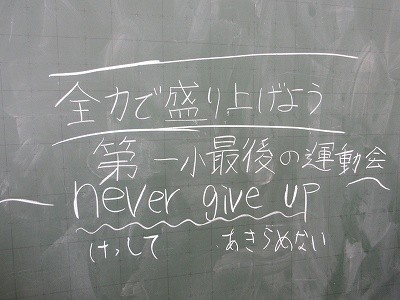 全力で盛り上げよう
第一小最後の運動会
never give up
けっして あきらめない